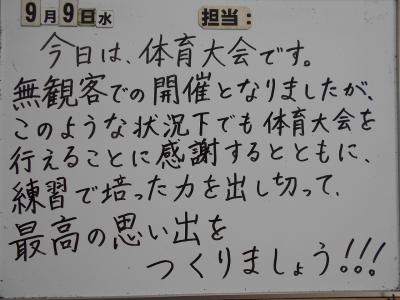 9月9日水 担当:
今日は、体育大会です。
無観客での開催となりましたが、
このような状況下でも体育大会を
行えることに感謝するとともに、
練習で培った力を出し切って、
最高の思い出を
つくりましょう!!!